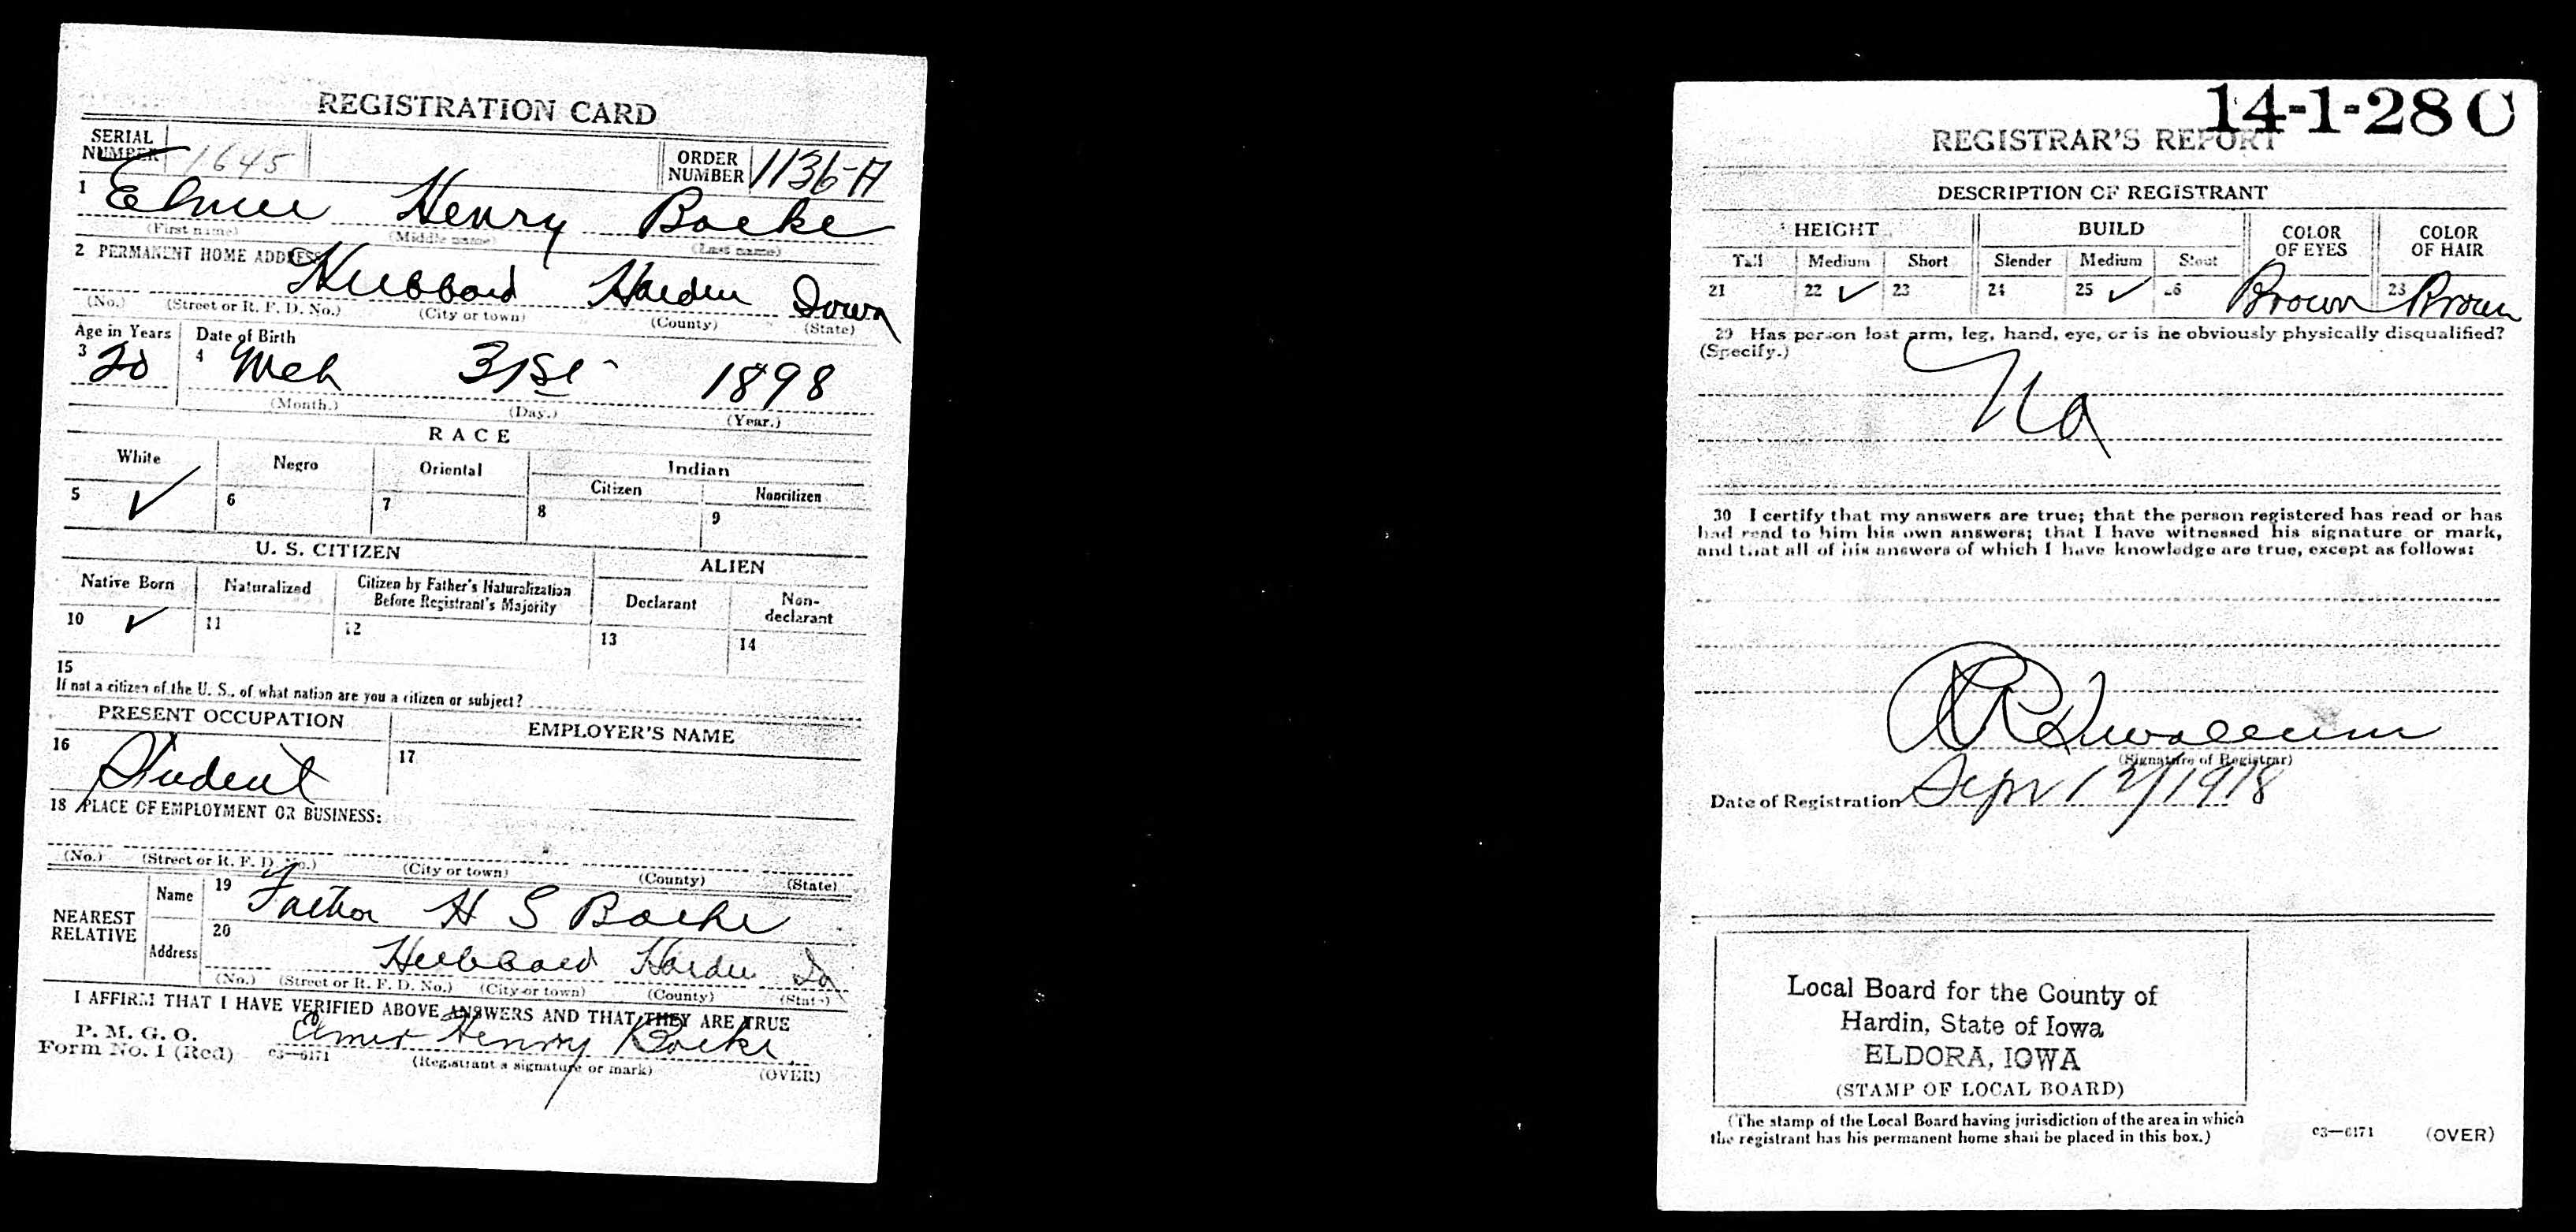 REGISTRATION CARD
SERIAL NUMBER 1645 ORDER NUMBER 1136-A
1 Elmer Henry Boeke
(First name) (Middle name) (Last name)
2 PERMANENT HOME ADDRESS
Hubbard Hardin Iowa
(No.) (Street or R. F. D. No.) (City or town) (County) (State)
Age in Years Date of Birth
3 20 4 Mch 31st 1898
(Month.) (Day.) (Year.)
RACE
White Negro Oriental Indian
Citizen Noncitizen
5 ✓ 6 7 8 9
U. S. CITIZEN ALIEN
Native Born Naturalized Citizen by Father's Naturalization Before Registrant's Majority Declarant Non-declarant
10 ✓ 11 12 13 14
15
If not a citizen of the U. S., of what nation are you a citizen or subject?
PRESENT OCCUPATION EMPLOYER'S NAME
16 Student 17
18 PLACE OF EMPLOYMENT OR BUSINESS:
(No.) (Street or R. F. D. No.) (City or town) (County) (State)
NEAREST RELATIVE Name 19 Father H S Boeke
Address 20 Hubbard Hardin Ia
(No.) (Street or R. F. D. No.) (City or town) (County) (State)
I AFFIRM THAT I HAVE VERIFIED ABOVE ANSWERS AND THAT THEY ARE TRUE
P. M. G. O.
Form No. 1 (Red) c3—6171 Elmer Henry Boeke
(Registrant's signature or mark) (OVER)
14-1-28 C
REGISTRAR'S REPORT
DESCRIPTION OF REGISTRANT
HEIGHT BUILD COLOR OF EYES COLOR OF HAIR
Tall Medium Short Slender Medium Stout
21 22 ✓ 23 24 25 ✓ 26 Brown 28 Brown
29 Has person lost arm, leg, hand, eye, or is he obviously physically disqualified?
(Specify.)
No
30 I certify that my answers are true; that the person registered has read or has
had read to him his own answers; that I have witnessed his signature or mark,
and that all of his answers of which I have knowledge are true, except as follows:
(Signature of Registrar)
Date of Registration Sept 12/1918
Local Board for the County of
Hardin, State of Iowa
ELDORA, IOWA
(STAMP OF LOCAL BOARD)
(The stamp of the Local Board having jurisdiction of the area in which
the registrant has his permanent home shall be placed in this box.)
c3—6171 (OVER)